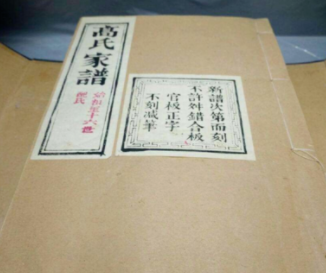 高氏家譜
新譜次第而刻
不許舛錯合板
官板正字
不刻减筆